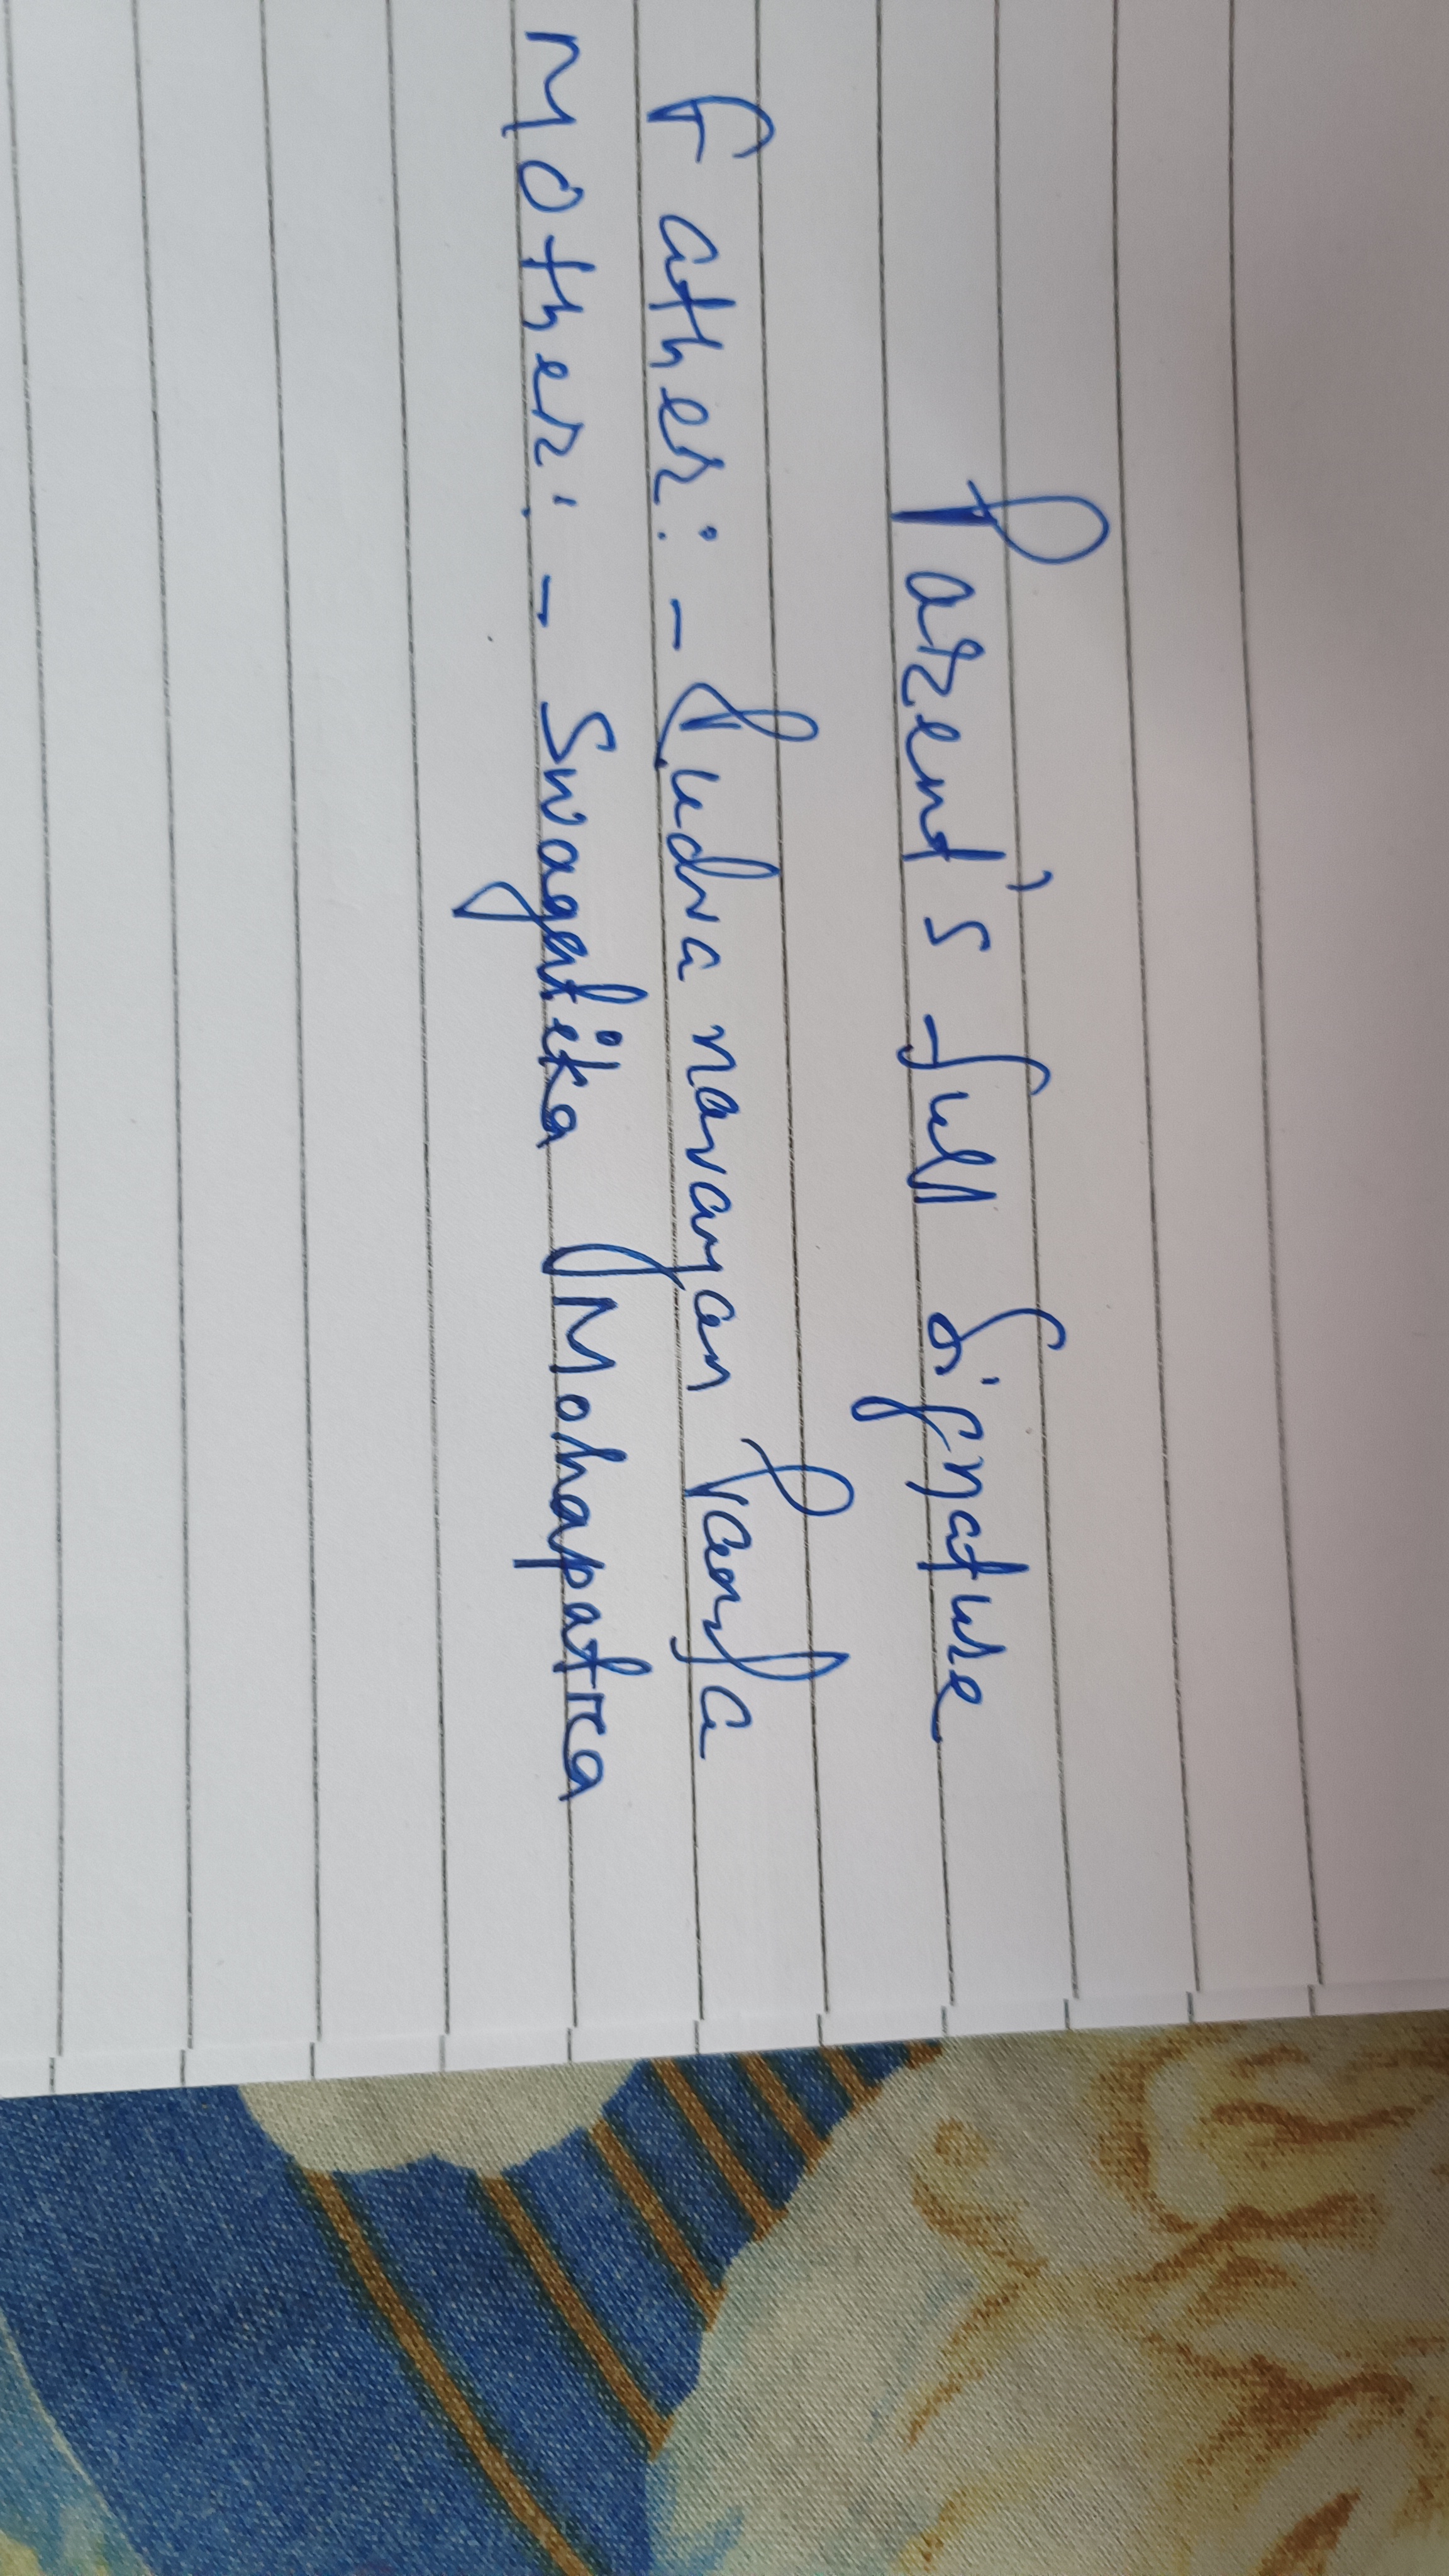 Parent's full signature
Father:- Rudra narayan Panda
Mother:- Swagatika Mohapatra